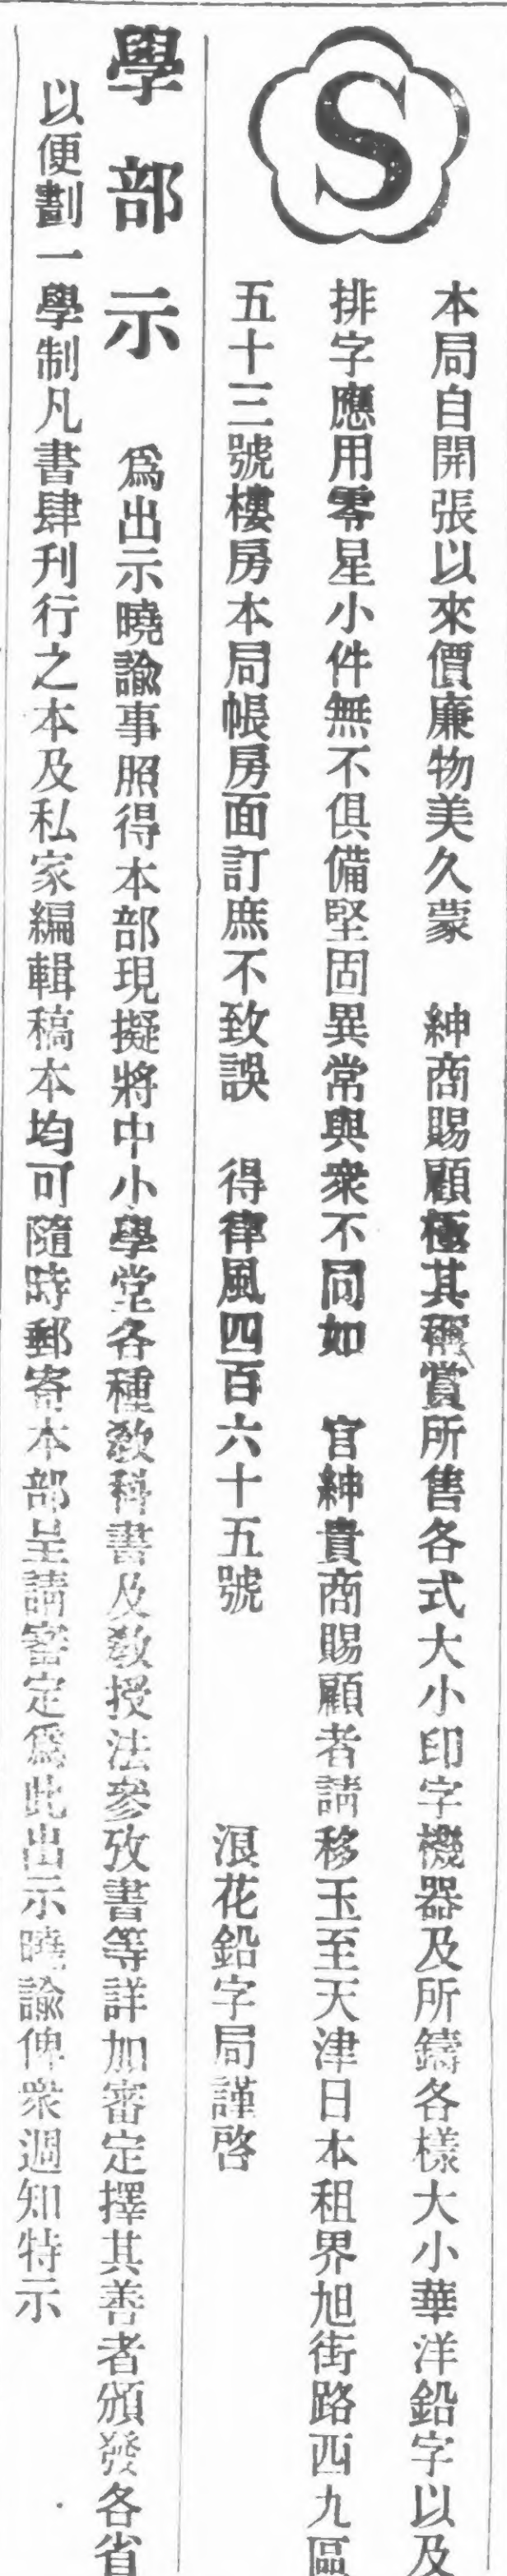 S
本局自開張以來價廉物美久蒙　紳商賜顧極其稱賞所售各式大小印字機器及所鑄各樣大小華洋鉛字以及
排字應用零星小件無不俱備堅固異常與衆不同如　官紳貴商賜顧者請移玉至天津日本租界旭街路西九區
五十三號樓房本局帳房面訂庶不致誤　得律風四百六十五號　浪花鉛字局謹啓
學部示　爲出示曉諭事照得本部現擬將中小學堂各種教科書及教授法參攷書等詳加審定擇其善者頒發各省
以便劃一學制凡書肆刊行之本及私家編輯稿本均可隨時郵寄本部呈請審定爲此出示曉諭俾衆週知特示